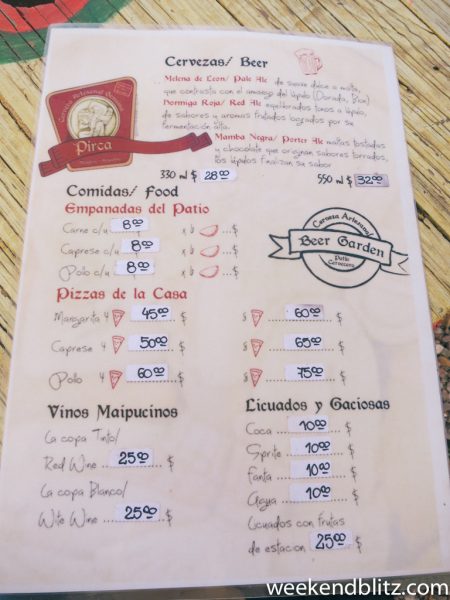 Cervezas/ Beer
Melena de Leon/ Pale Ale de suave dulce a malta,
que contrasta con el amargo del lúpulo (Dorada, Blox)
Hormiga Roja/ Red Ale equilibrados tonos a lúpulo,
de sabores y aromas frutados logrados por su
fermentación alta.
Mamba Negra/ Porter Ale maltas tostadas
y chocolate que originan sabores torrados,
los lúpulos finalizan su sabor
Cerveza Artesanal
Pirca
330 ml $ 28.00
550 ml $ 32.00
Comidas/ Food
Empanadas del Patio
Carne c/u 8.00 x 6 ...$
Caprese c/u 8.00 x 6 ...$
Pollo c/u 8.00 x 6 ...$
Cerveza Artesanal
Beer Garden
Patio
Cervecero
Pizzas de la Casa
Margarita 4 45.00 $ 8 60.00 $
Caprese 4 50.00 $ 8 65.00 $
Pollo 4 60.00 $ 8 75.00 $
Vinos Maipucinos
La copa Tinto/
Red Wine ... 25.00 $
La copa Blanco/
Wite Wine ... 25.00 $
Licuados y Gaciosas
Coca ... 10.00 $
Sprite ... 10.00 $
Fanta ... 10.00 $
Agua ... 10.00 $
Licuados con frutas
de estacion 25.00 $
weekendblitz.com